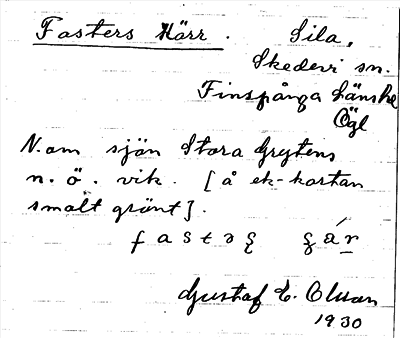 Fasters Kärr. Sila,
Skedevi sn.
Finspånga Länshe
Ögl
N. om sjön Stora Grytens
n. ö. vik. [å ek-kartan
smalt grönt].
Gustaf E. Olsson
1930